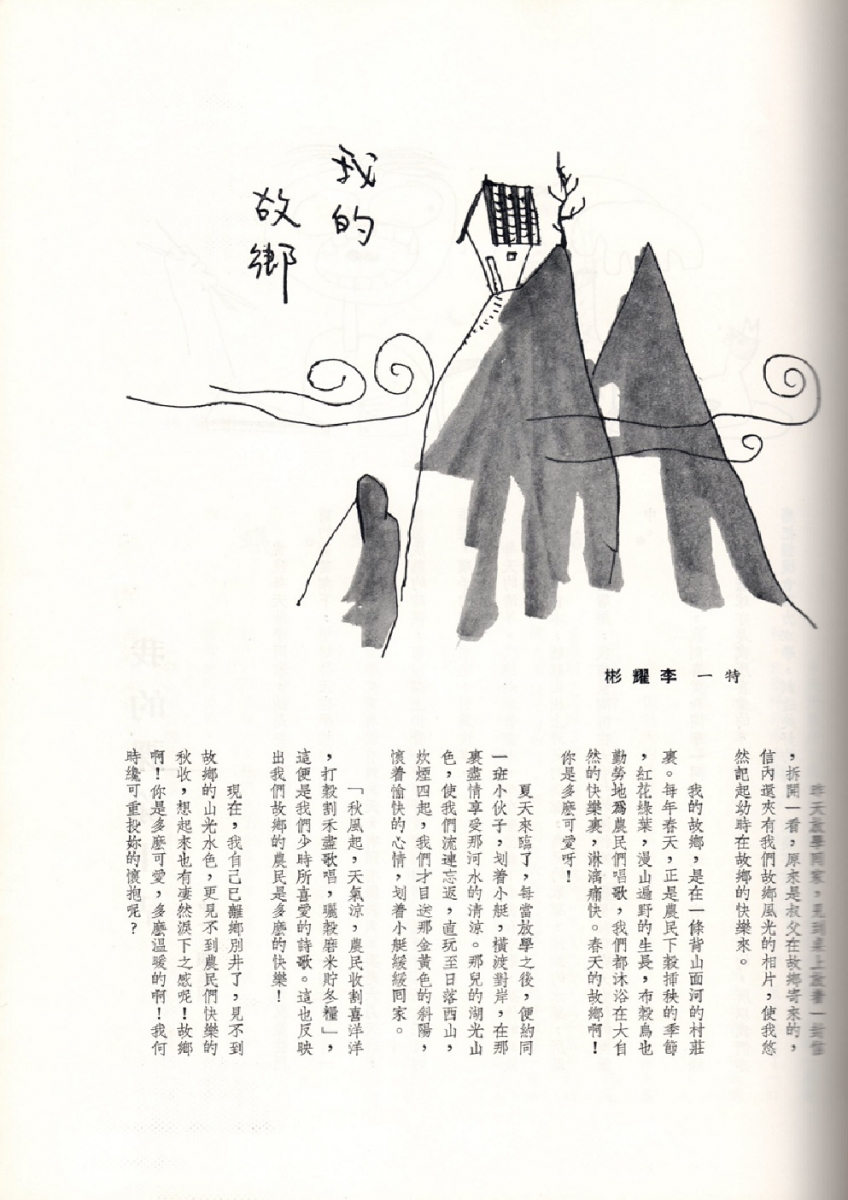 我的
故鄉
特一 李耀彬
昨天放學囘家，見到桌上放着一封信
，拆開一看，原來是叔父在故鄉寄來的，
信內還夾有我們故鄉風光的相片，使我悠
然記起幼時在故鄉的快樂來。
我的故鄉，是在一條背山面河的村莊
裏。每年春天，正是農民下穀揷秧的季節
，紅花綠葉，漫山遍野的生長，布穀鳥也
勤勞地爲農民們唱歌，我們都沐浴在大自
然的快樂裏，淋漓痛快。春天的故鄉啊！
你是多麽可愛呀！
夏天來臨了，每當放學之後，便約同
一班小伙子，划着小艇，橫渡對岸，在那
裏盡情享受那河水的清涼。那兒的湖光山
色，使我們流連忘返，直玩至日落西山，
炊煙四起，我們才目送那金黃色的斜陽，
懷着愉快的心情，划着小艇緩緩囘家。
「秋風起，天氣涼，農民收割喜洋洋
，打穀割禾盡歌唱，曬穀磨米貯冬糧」，
這便是我們少時所喜愛的詩歌。這也反映
出我們故鄉的農民是多麽的快樂！
現在，我自己已離鄉別井了，見不到
故鄉的山光水色，更見不到農民們快樂的
秋收，想起來也有凄然淚下之感呢！故鄉
啊！你是多麽可愛，多麽溫暖的啊！我何
時纔可重投妳的懷抱呢？